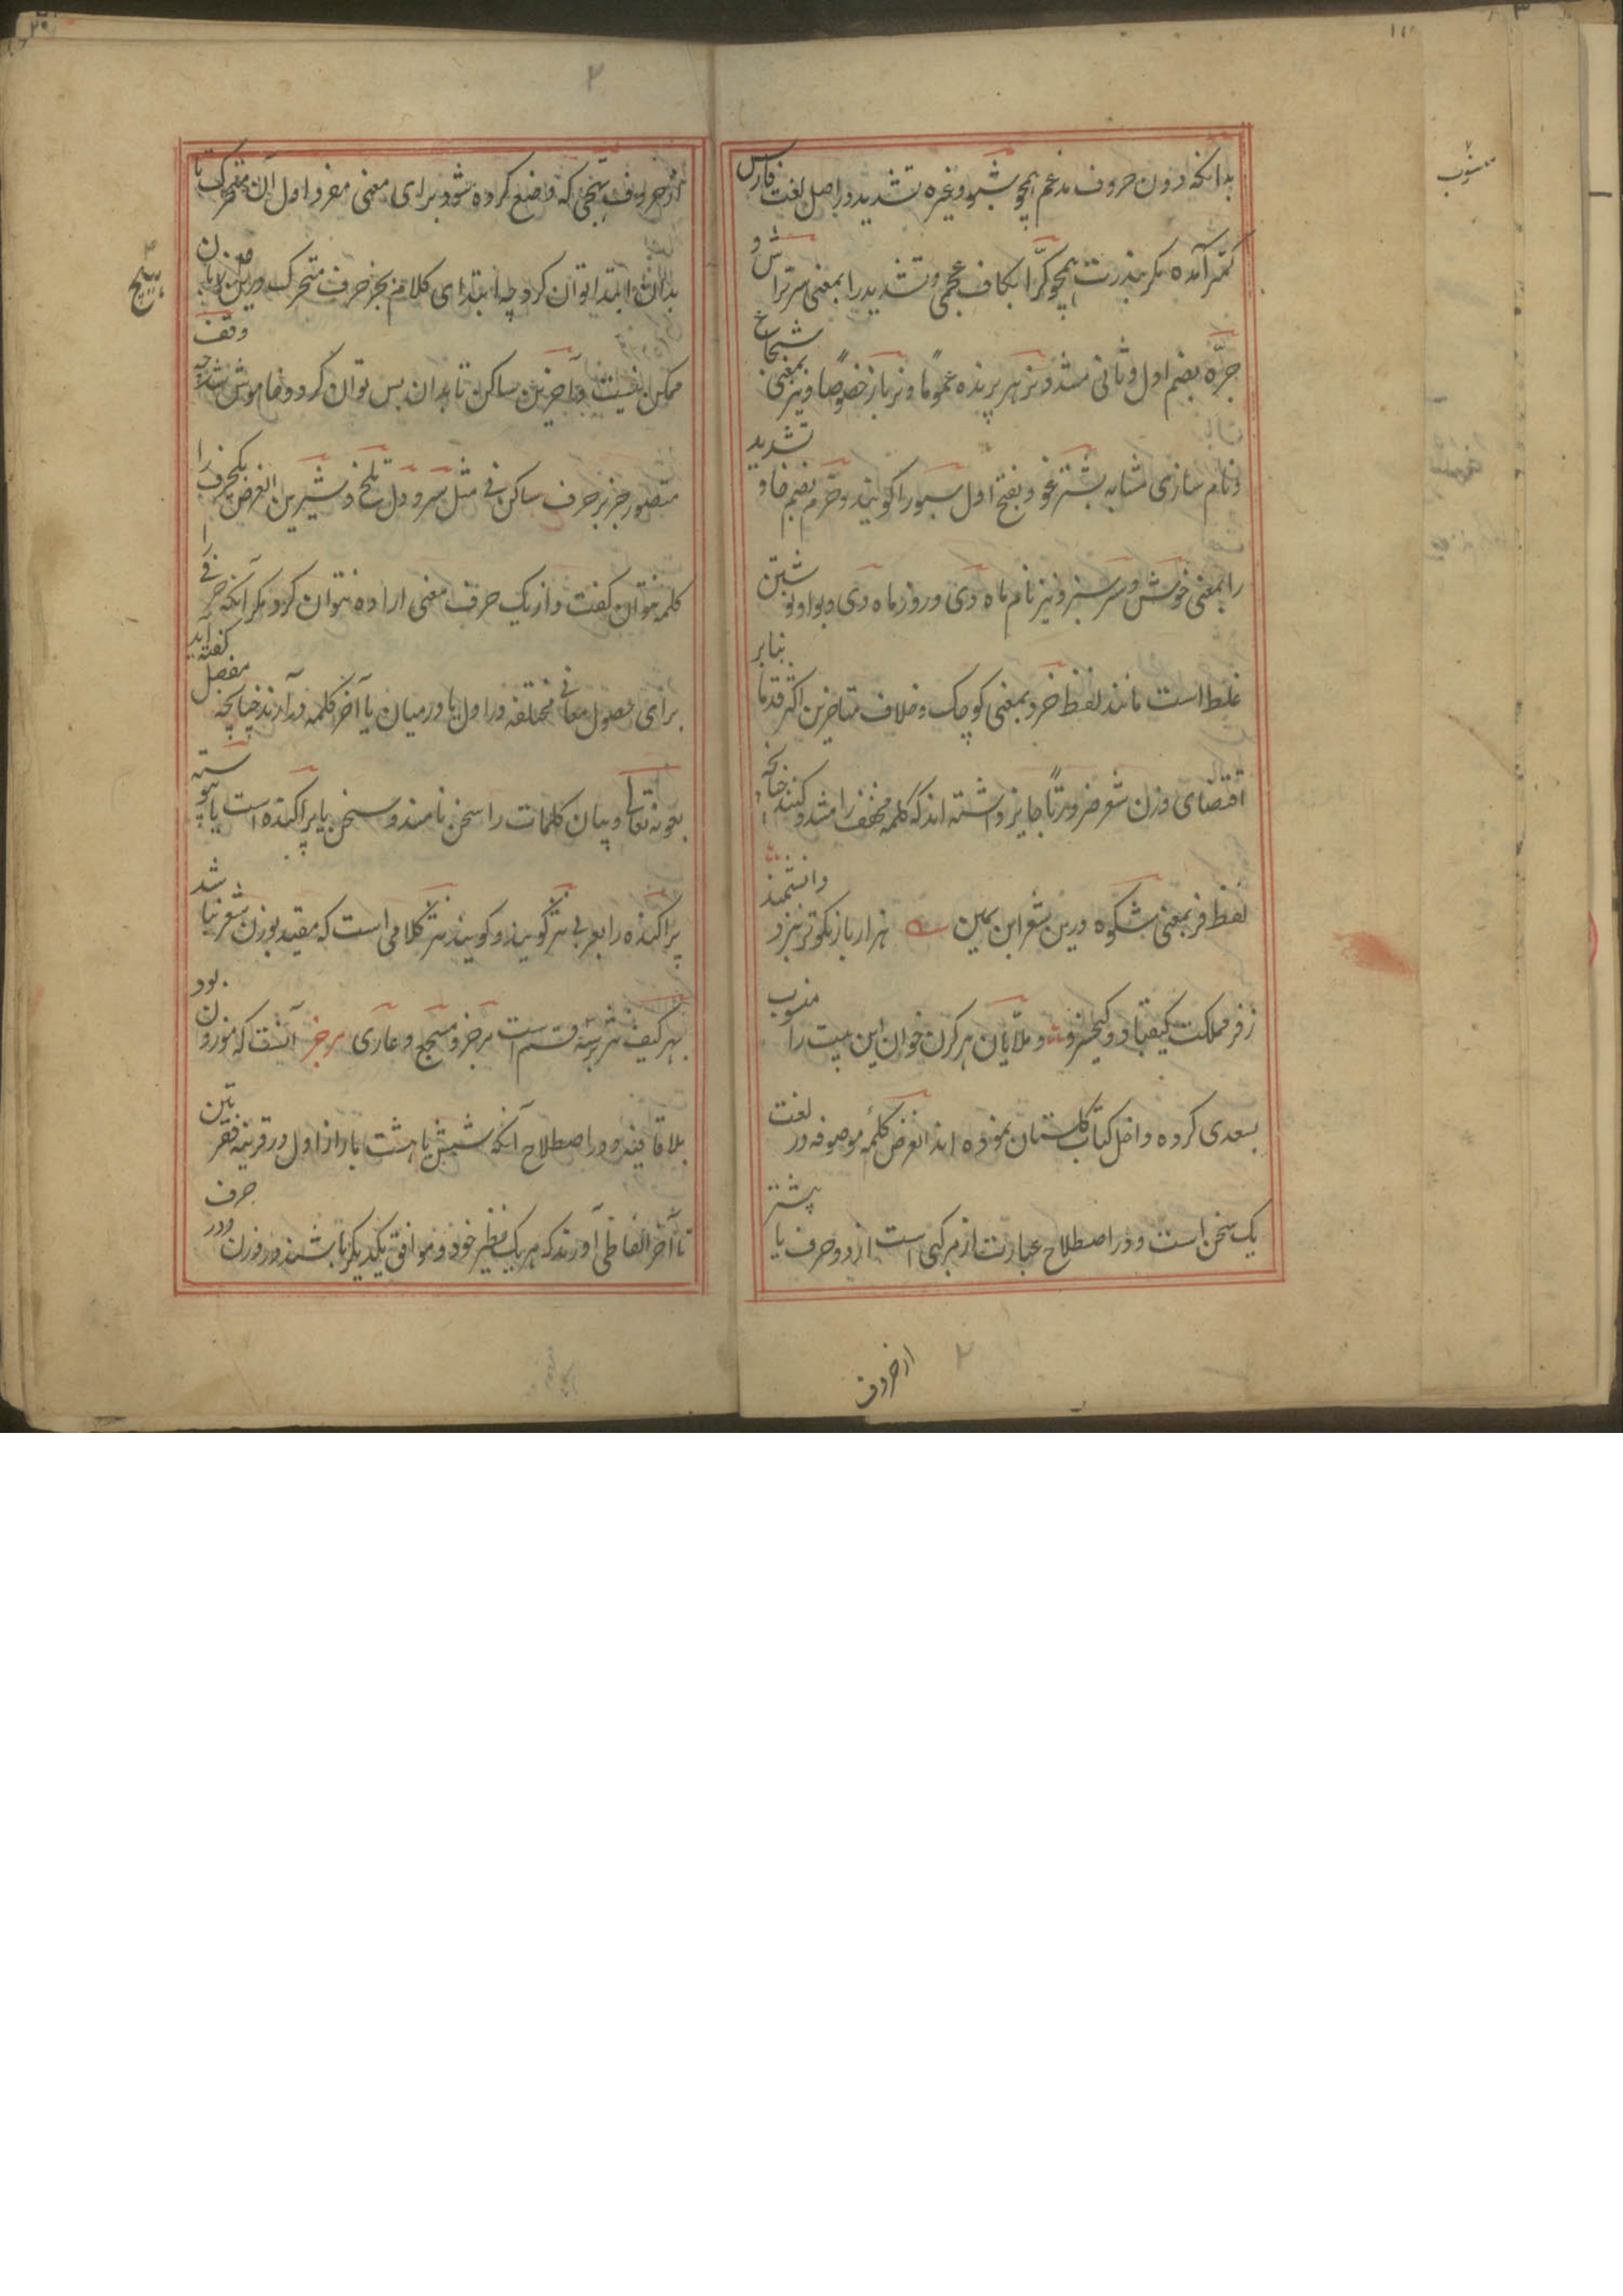 بدانکه درون حروف مدغم همچو شبو وغیره تشدید در اصل لغت فارس
کمتر آمده مگر بندرت همچو کرّا بکاف عجمی و تشدید را بمعنی سرتراش و
جرّه بضم اول و ثانی مشدد نر هر پرنده عموماً و نر باز خصوصاً و نیز بمعنی شجاع
و نام سازی مشابه بشترغو و بفتح اول سبو را گویند و خرّم بضم خا و تشدید
را بمعنی خوش و سرسبز و نیز نام ماه دی و روز ماه دی و بواو نوشتن
غلط است مانند لفظ خرد بمعنی کوچک و خلاف متاخرین اکثر قدما بنابر
اقتضای وزن شعر ضرورتاً جایز داشته اند که کلمه مخفف را مشدد کنند چنانکه
لفظ فر بمعنی شکوه درین شعر ابن یمین هزار بار نکوتر بنزد دانشمند
ز فر مملکت کیقباد و کیخسرو و ملایان هر کزن خوان این بیت را منسوب
بسعدی کرده داخل کتاب گلستان نموده اند الغرض کلمه موصوفه در لغت
یک سخن است و در اصطلاح عبارت از مرکبی است از دو حرف یا بیشتر
از حروف
منسوب
از حروف تهجی که وضع کرده شود برای معنی مفرد اول آن متحرک تا
بدان ابتدا توان کرد چه ابتدای کلام بجز حرف متحرک درین زبان
ممکن نیست و آخرین ساکن تا بدان بس توان کرد و خاموش شد چه وقف
متصور جز بر حرف ساکن نی مثل سر و دل تلخ و شیرین الغرض یکحرف را
کلمه نتوان گفت و از یک حرف معنی اراده نتوان کرد مگر آنکه حرفی را
برای حصول معانی مختلفه در اول یا درمیان یا آخر کلمه در آرند چنانچه مفصل گفته آید
بعونه تعالی و پیان کلمات را سخن نامند و سخن یا پراکنده است یا پیوسته
پراکنده را بعربی نثر گویند و گویند نثر کلامی است که مقید بوزن شعر نباشد
بهر کیف نثر بر سه قسم است مرجز و مسجع و عاری مرجز آنست که موزون بود
بلا قافیه و در اصطلاح آنکه شش یا هشت بار از اول در قرینه فقرتین
تا آخر الفاظی آورند که هر یک نظیر خود و موافق یکدیگر باشند در وزن و در حرف